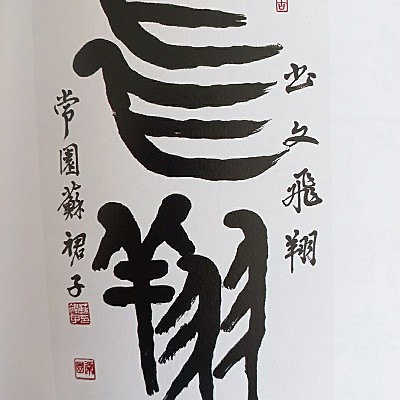 文飛翔
飛翔
常園蘇裙子